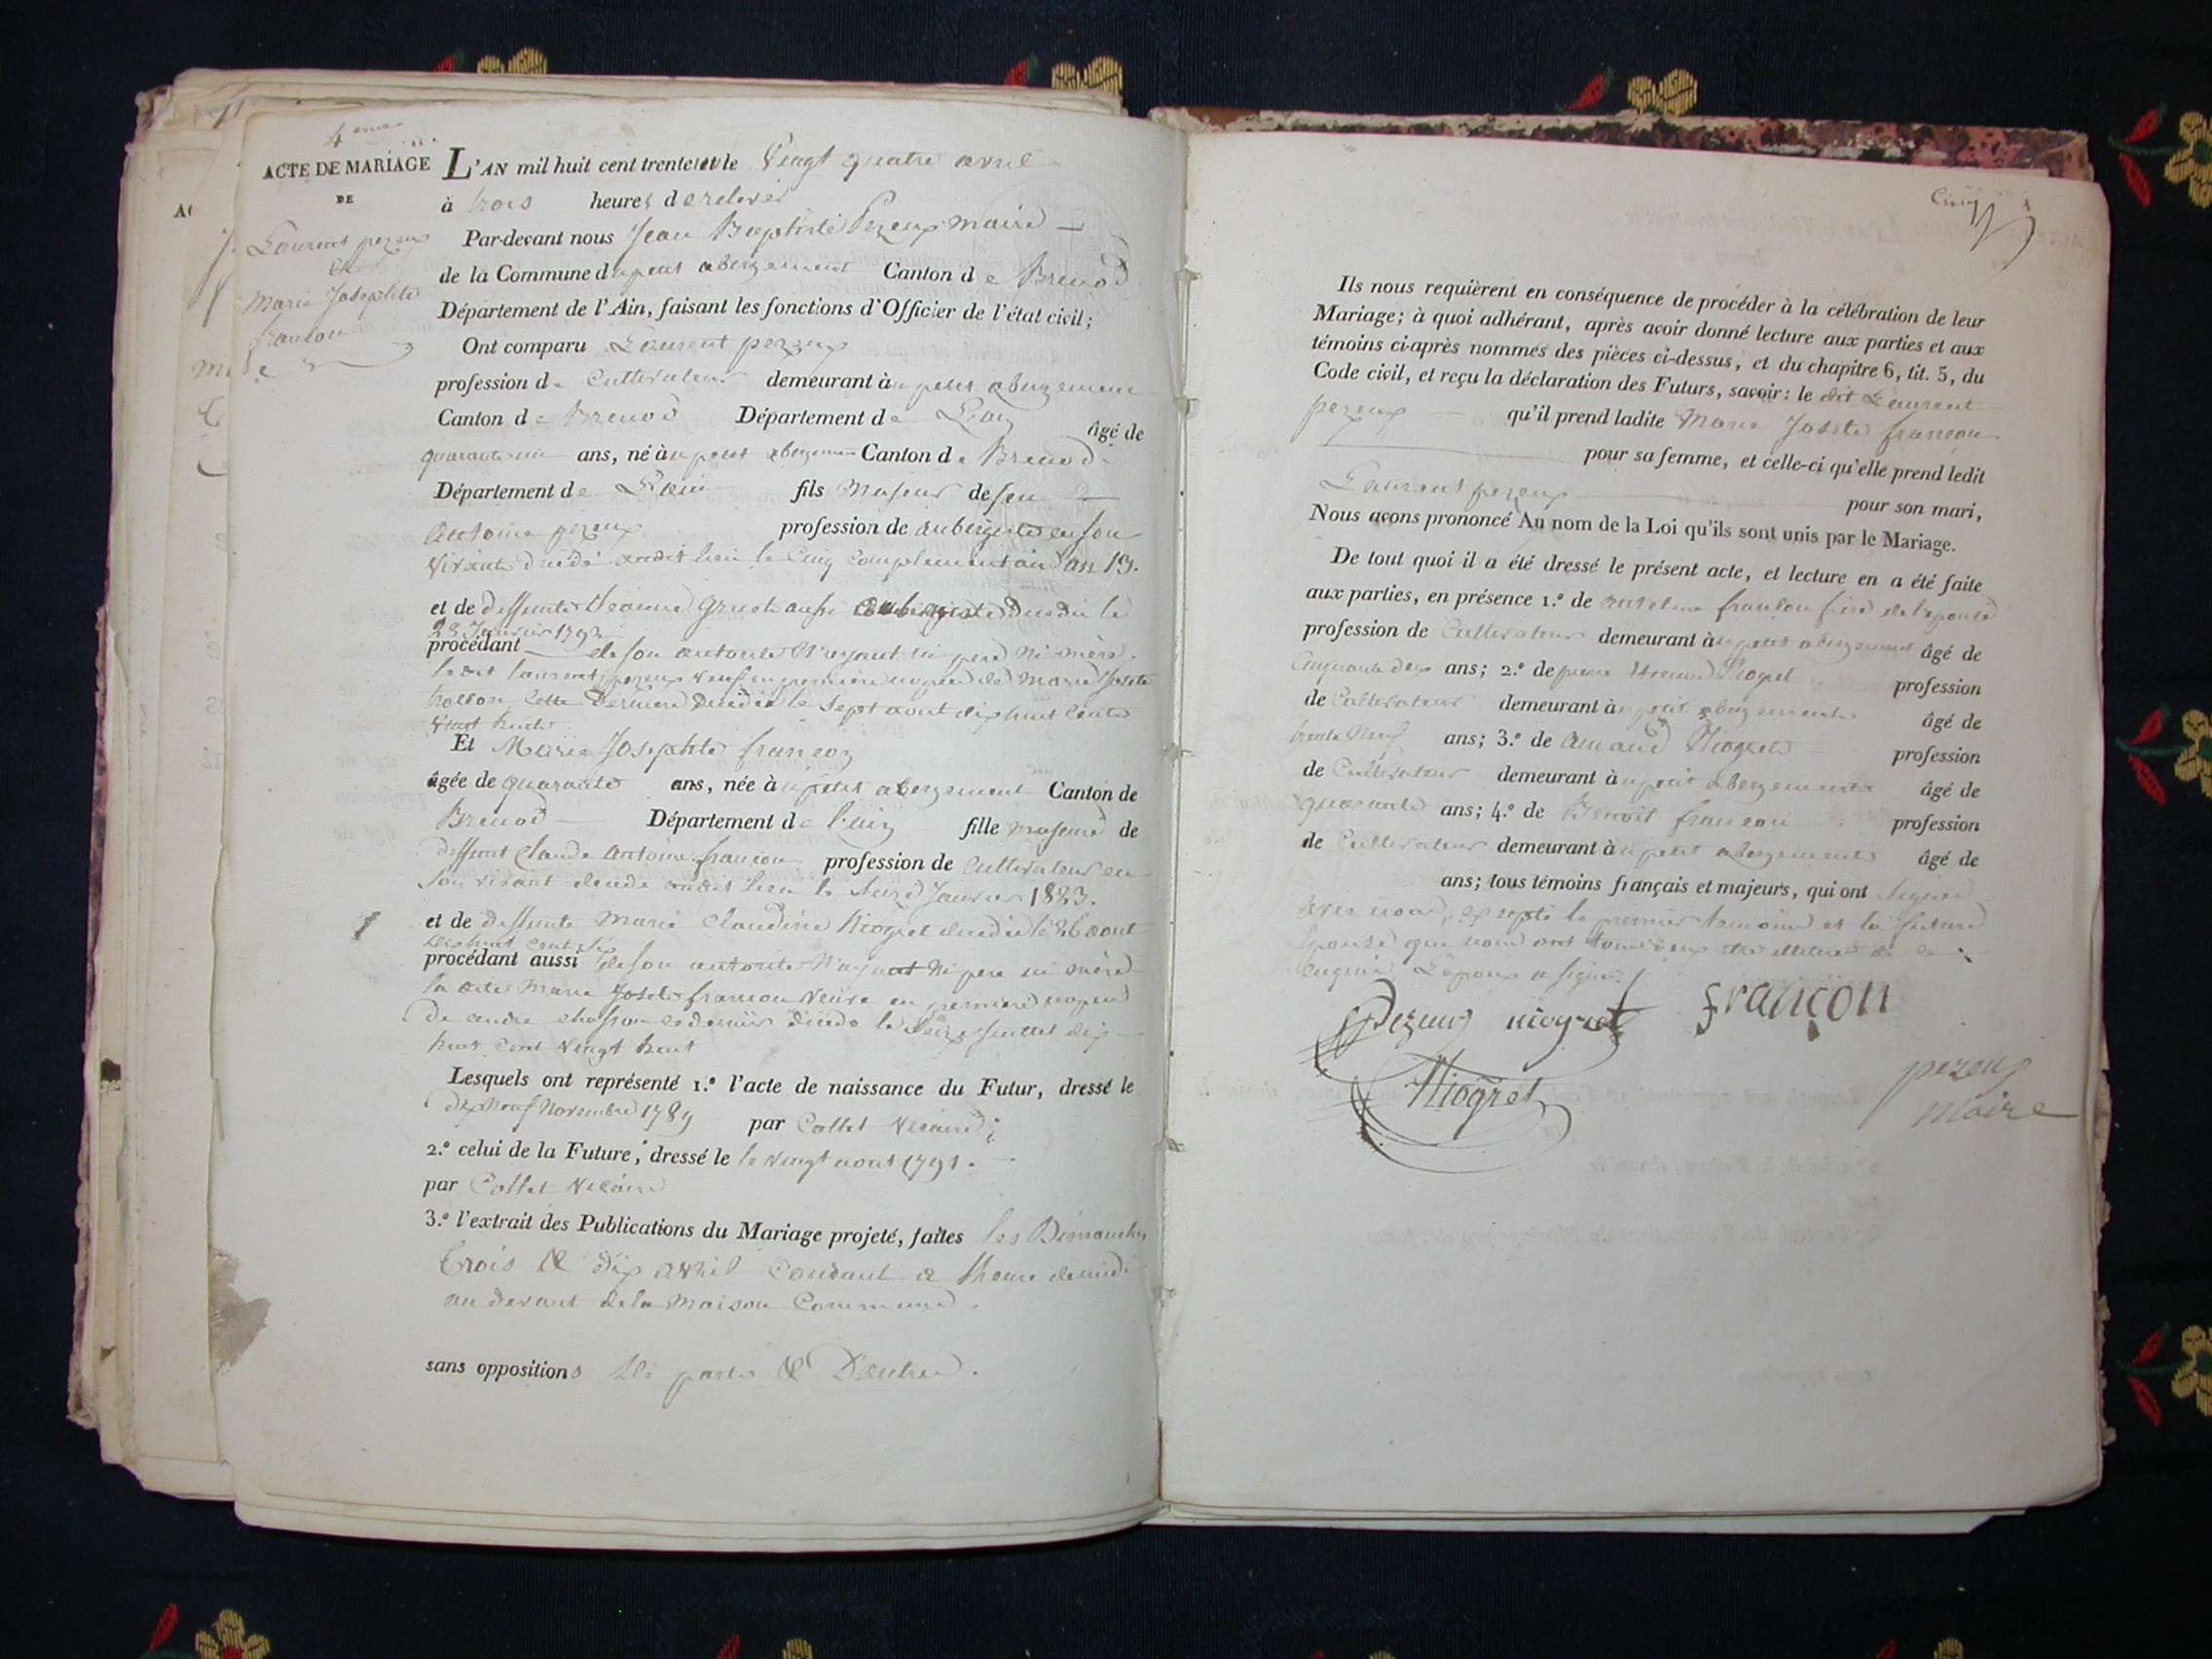 4eme
ACTE DE MARIAGE
DE
Laurent pezeux
et
Marie Josephte
françon
L'AN mil huit cent trente et un le Vingt quatre avril
à trois heures de relevée
Par-devant nous Jean Baptiste Pezeux maire
de la Commune du petit abergement Canton de Brenod
Département de l'Ain, faisant les fonctions d'Officier de l'état civil;
Ont comparu Laurent pezeux
profession de Cultivateur demeurant au petit abergement
Canton de Brenod Département de L'ain âgé de
quarante un ans, né au petit abergement Canton de Brenod
Département de L'ain fils Majeur de feu
Antoine pezeux profession de aubergiste en son
vivant décédé audit lieu le Cinq complementair an 19.
et de deffunte Jeanne aussi aubergiste décédée le
28 Janvier 1792
procédant de son autorité N'ayant ni pere ni mère.
le dit laurent pezeux veuf en première noces de Marie Josete
cette dernière décédée le sept aout dix huit cent
vingt huit
Et Marie Josephte françon
âgée de quarante ans, née au petit abergement Canton de
Brenod Département de l'ain fille majeure de
deffunt Claude Antoine françon profession de Cultivateur en
son vivant décédé audit lieu le Janvier 1823.
et de deffunte Marie Claudine Niogret décédée le 26 aout
dix huit cent six
procédant aussi de son autorité N'ayant Ni pere ni mère
la dite Marie Josete françon veuve en première noces
de andre ce dernier décédé le seize Juillet dix
huit Cent vingt huit
Lesquels ont représenté 1.º l'acte de naissance du Futur, dressé le
dix Neuf Novembre 1789 par Collet Vicaire;
2.º celui de la Future, dressé le le vingt aout 1791.
par Collet Vicaire
3.º l'extrait des Publications du Mariage projeté, faites les Dimanches
trois & dix avril Courant a l'heure de midi
au devant de la Maison Commune.
sans oppositions de parts & D'autres.
Ils nous requièrent en conséquence de procéder à la célébration de leur
Mariage; à quoi adhérant, après avoir donné lecture aux parties et aux
témoins ci-après nommés des pièces ci-dessus, et du chapitre 6, tit. 5, du
Code civil, et reçu la déclaration des Futurs, savoir: le dit Laurent
pezeux qu'il prend ladite Marie Josete françon
pour sa femme, et celle-ci qu'elle prend ledit
Laurent pezeux pour son mari,
Nous avons prononcé Au nom de la Loi qu'ils sont unis par le Mariage.
De tout quoi il a été dressé le présent acte, et lecture en a été faite
aux parties, en présence 1.º de françon frère de l'épouse
profession de Cultivateur demeurant au petit abergement âgé de
Cinquante deux ans; 2.º de pierre Niogret profession
de Cultivateur demeurant au petit abergement âgé de
trente Neuf ans; 3.º de Amand Niogret profession
de Cultivateur demeurant au petit abergement âgé de
quarante ans; 4.º de Benoit françon profession
de Cultivateur demeurant au petit abergement âgé de
ans; tous témoins français et majeurs, qui ont signé
avec nous, excepté le premier temoin et la future
épouse que nous ont tous deux été illitéré de ce
enquis L'époux a signé.
Pezeux niogret françon
Niogret
pezeux
maire